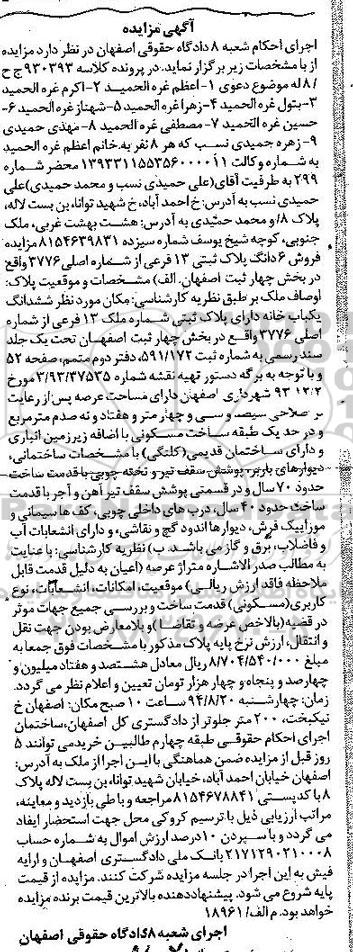 آگهی مزایده
اجرای احکام شعبه ۸ دادگاه حقوقی اصفهان در نظر دارد مزایده
از با مشخصات زیر برگزار نماید. در پرونده کلاسه ۹۳۰۳۹۳ ج ح
/۸ له موضوع دعوی ۱- اعظم غره الحمید ۲- اکرم غره الحمید
۳- بتول غره الحمید ۴- زهرا غره الحمید ۵- شهناز غره الحمید ۶-
حسین غره الحمید ۷- مصطفی غره الحمید ۸- مهدی حمیدی
۹- زهره حمیدی نسب که هر ۸ نفر به خانم اعظم غره الحمید
به شماره وکالت ۱۳۹۳۳۱۱۵۵۳۵۶۰۰۰۰۱۱ محضر شماره
۲۹۹ به طرفیت آقای(علی حمیدی نسب و محمد حمیدی)علی
حمیدی نسب به آدرس: خ احمد آباد، خ شهید توانا، بن بست لاله،
پلاک ۸/ و محمد حمیدی به آدرس: هشت بهشت غربی، ملک
جنوبی، کوچه شیخ یوسف شماره سیزده ۸۱۵۴۶۳۹۸۳۱ مزایده
فروش ۶ دانگ پلاک ثبتی ۱۳ فرعی از شماره اصلی ۳۷۷۶ واقع
در بخش چهار ثبت اصفهان. الف) مشخصات و موقعیت پلاک:
اوصاف ملک بر طبق نظریه کارشناسی: مکان مورد نظر ششدانگ
یکباب خانه دارای پلاک ثبتی شماره ملک ۱۳ فرعی از شماره
اصلی ۳۷۷۶ واقع در بخش چهار ثبت اصفهان تحت یک جلد
سند رسمی به شماره ثبت ۵۹۱/۱۷۲، دفتر دوم متمم، صفحه ۵۲
و با توجه به برگه دستور تهیه نقشه شماره ۳/۹۳/۳۷۵۳۵ مورخ
۹۳ ۱۲/۲ شهرداری اصفهان دارای مساحت عرصه پس از رعایت
بر اصلاحی سیصد و سی و چهار متر و هفتاد و نه صدم متر مربع
و در حد یک طبقه ساخت مسکونی با اضافه زیرزمین انباری
و دارای ساختمان قدیمی(کلنگی) با مشخصات ساختمانی،
دیوارهای باربر، پوشش سقف تیر و تخته چوبی با قدمت ساخت
حدود ۷۰ سال و در قسمتی پوشش سقف تیر آهن و آجر با قدمت
ساخت حدود ۴۰ سال، درب های داخلی چوبی، کف ها سیمانی و
موزاییک فرش، دیوارها اندود گچ و نقاشی، و دارای انشعابات آب
و فاضلاب، برق و گاز می باشد. ب) نظریه کارشناسی: با عنایت
به مطالب صدر الاشاره متراژ عرصه (اعیان به دلیل قدمت قابل
ملاحظه فاقد ارزش ریالی) موقعیت، امکانات، انشعابات، نوع
کاربری(مسکونی) قدمت ساخت و بررسی جمیع جهات موثر
در قضیه(بالاخص عرضه و تقاضا)و بلامعارض بودن جهت نقل
و انتقال، ارزش نرخ پایه پلاک مذکور با مشخصات فوق جمعا به
مبلغ ۸/۷۰۴/۵۴۰/۰۰۰ ریال معادل هشتصد و هفتاد میلیون و
چهارصد و پنجاه و چهار هزار تومان تعیین و اعلام نظر می گردد.
زمان: چهارشنبه ۹۴/۸/۲۰ ساعت ۱۰ صبح مکان: اصفهان خ
نیکبخت، ۲۰۰ متر جلوتر از دادگستری کل اصفهان، ساختمان
اجرای احکام حقوقی طبقه چهارم طالبین خرید می توانند ۵
روز قبل از مزایده ضمن هماهنگی با این اجرا از ملک به آدرس:
اصفهان خیابان احمد آباد، خیابان شهید توانا، بن بست لاله پلاک
۸ با کد پستی ۸۱۵۴۶۷۸۸۴۱ مراجعه و با طی بازدید و معاینه،
مراتب ارزیابی ذیل با ترسیم کروکی محل جهت استحضار ایفاد
می گردد و با سپردن ۱۰ درصد ارزش اموال به شماره حساب
۲۱۷۱۲۹۰۲۱۰۰۰۸ بانک ملی دادگستری اصفهان و ارایه
فیش به این اجرا در جلسه مزایده شرکت کنند. مزایده از قیمت
پایه شروع می شود. پیشنهاد دهنده بالاترین قیمت برنده مزایده
خواهد بود. م الف/ ۱۸۹۶۱
اجرای شعبه ۸ دادگاه حقوقی اصفهان